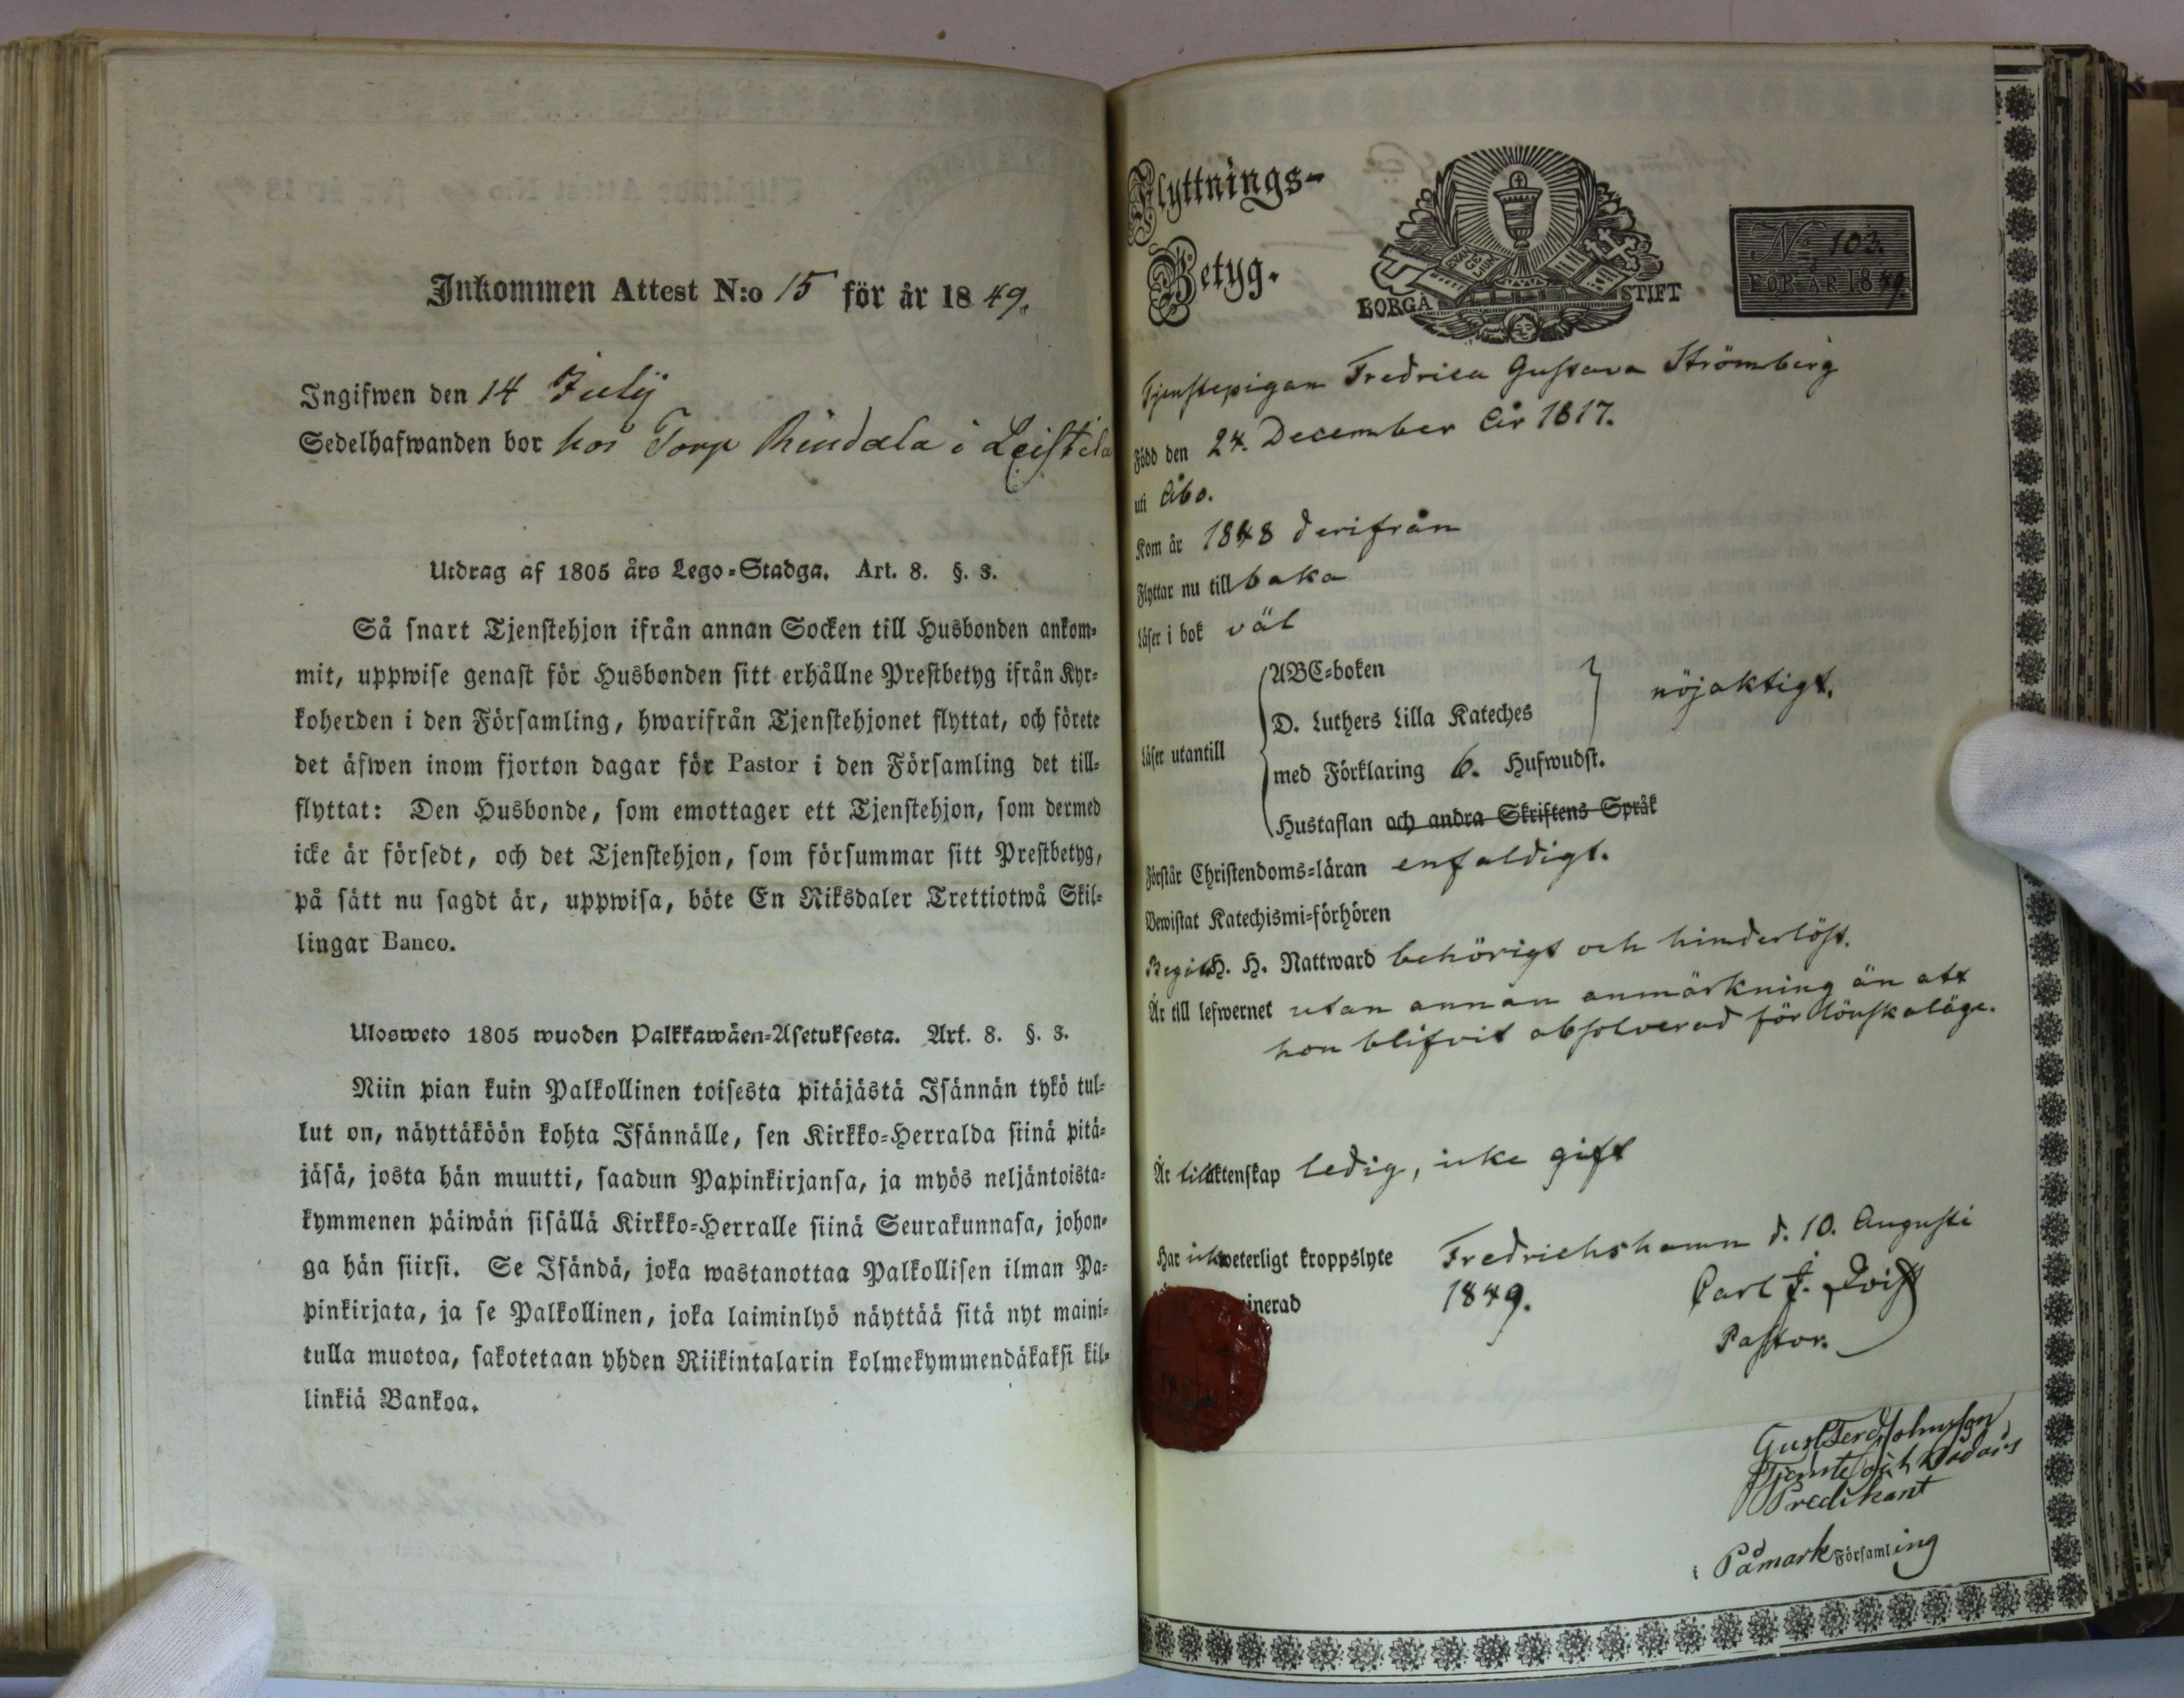 Inkommen Attest N:o 15 för år 1849.
Ingifwen den 14 Julij
Sedelhafwanden bor hos Torp Rindala i Leistila
Utdrag af 1805 års Lego-Stadga. Art. 8. §. 3.
Så snart Tjenstehjon ifrån annan Socken till Husbonden ankom-
mit, uppwise genast för Husbonden sitt erhållne Prestbetyg ifrån Kyr-
koherden i den Församling, hwarifrån Tjenstehjonet flyttat, och förete
det äfwen inom fjorton dagar för Pastor i den Församling det till-
flyttat: Den Husbonde, som emottager ett Tjenstehjon, som dermed
icke är försedt, och det Tjenstehjon, som försummar sitt Prestbetyg,
på sätt nu sagdt är, uppwisa, böte En Riksdaler Trettiotwå Skil-
lingar Banco.
Ulosweto 1805 wuoden Palkkawäen-Asetuksesta. Art. 8. §. 3.
Niin pian kuin Palkollinen toisesta pitäjästä Isännän tykö tul-
lut on, näyttäköön kohta Isännälle, sen Kirkko-Herralda siinä pitä-
jäsä, josta hän muutti, saadun Papinkirjansa, ja myös neljäntoista-
kymmenen päiwän sisällä Kirkko-Herralle siinä Seurakunnasa, johon-
ga hän siirsi. Se Isändä, joka wastanottaa Palkollisen ilman Pa-
pinkirjata, ja se Palkollinen, joka laiminlyö näyttää sitä nyt maini-
tulla muotoa, sakotetaan yhden Riikintalarin kolmekymmendäkaksi kil-
linkiä Bankoa.
Flyttnings-
Betyg.
EVAN
GE
LIUM
BORGÅ STIFT
No 102.
FÖR ÅR 1849
Tjenstepigan Fredrica Gustava Strömberg
Född den 24. December År 1817.
uti Åbo.
Kom år 1848 derifrån
Flyttar nu till baka
Läser i bok väl
Läser utantill
ABC-boken
D. Luthers Lilla Kateches
med Förklaring 6. Hufwudst.
Hustaflan och andra Skriftens Språk
nöjaktigt.
Förstår Christendoms-läran enfaldigt.
Bewistat Katechismi-förhören
Begått H. H. Nattward behörigt och hinderlöst.
Är till lefwernet utan annan anmärkning än att
hon blifvit absolverad för lönskaläge.
Är till äktenskap ledig, icke gift
Har icke weterligt kroppslyte
inerad
Fredrichshamn d. 10. Augusti
1849.
Carl J. Qvist
Pastor.
Predikant
i Påmark Församling